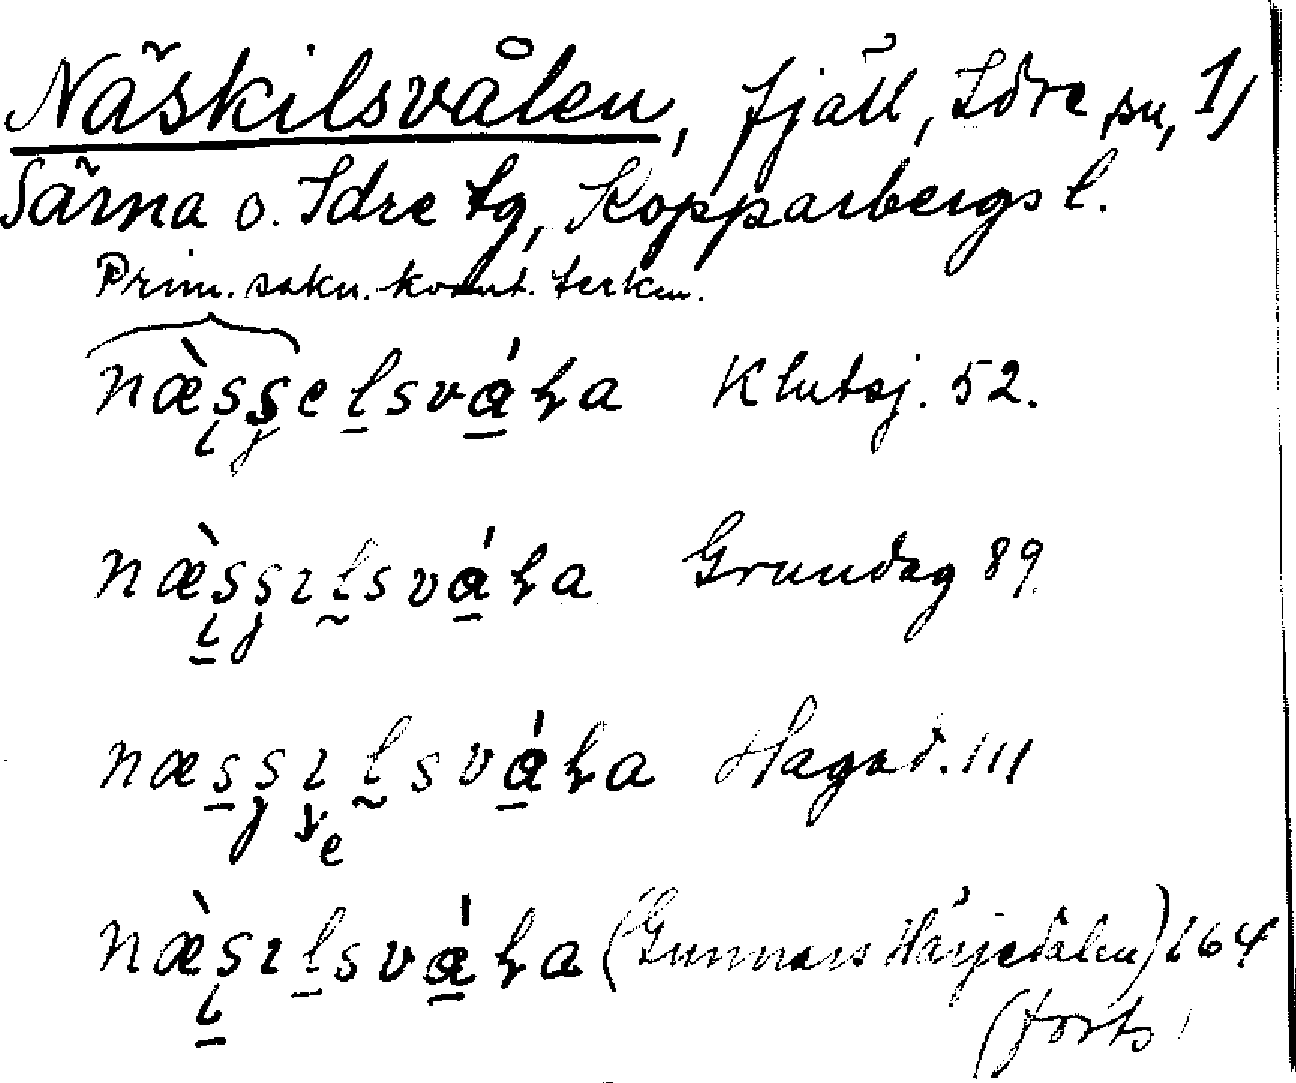 Näskilsvålen, fjäll, Idre sn, 1/
Särna o. Idre tg, Kopparbergs l.
Prim. sakn. komb. terkn.
næ̀sselsvåɽa Klutsj. 52.
næ̀ssɪlsvåɽa Grundag 89.
næssɪlsvåɽa Hagad. 111
e
næ̀sɪlsvåɽa (Gunnars Härjedalen) 164
(forts.